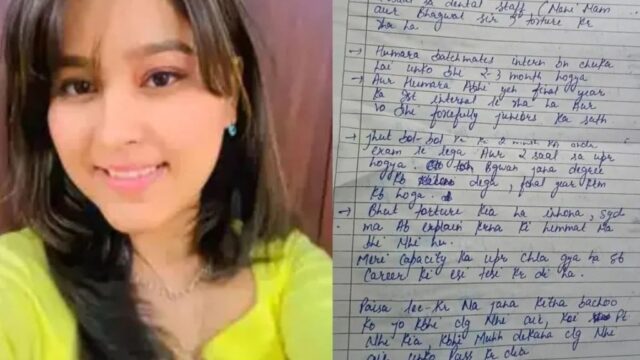 sa dental staff (Mani Mam
aur Bhagwat Sir) torture kr
rha ha.
→ Humara batchmates intern bn chuka
hai unko bhi 2-3 month hogya
→ Aur Humara Abhi yeh final year
ka 1st internal le rha ha Aur
vo bhi forcefully juniors ka sath
→ jhut bol-bol kr
exam le lega Aur 2 saal sa upr
hogya. Bgwan jana degree
kb dega, final year kb
kb hoga.
→ Bhut torture kia ha inhona,
ma Ab explain krna ki himmat ha
bhi Nhi hu.
Meri capacity ka upr chla gya ha sb
Career ki esi tesi kr di ha.
Paisa lee-kr Na jana kitna bachoo
ko jo kbhi clg Nhi air, koi
Nhi kia, kbhi Muhh dekhana clg Nhi
air unko pass kr deta